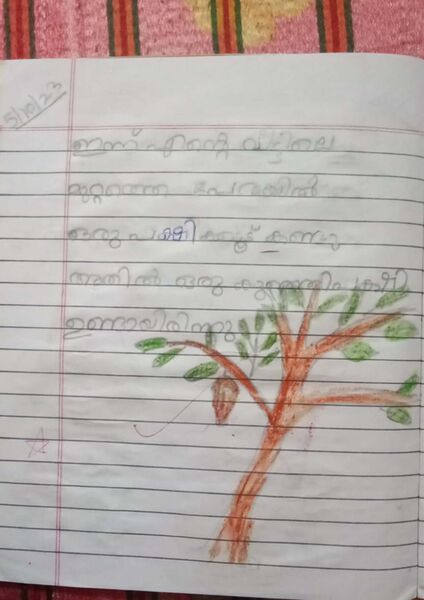 5/10/23
ഇന്ന് എന്റെ വീട്ടിലെ
മുറ്റത്തെ പേരയിൽ
ഒരു പക്ഷിക്കൂട് കണ്ടു
അതിൽ ഒരു കുഞ്ഞിപക്ഷി
ഉണ്ടായിരുന്നു